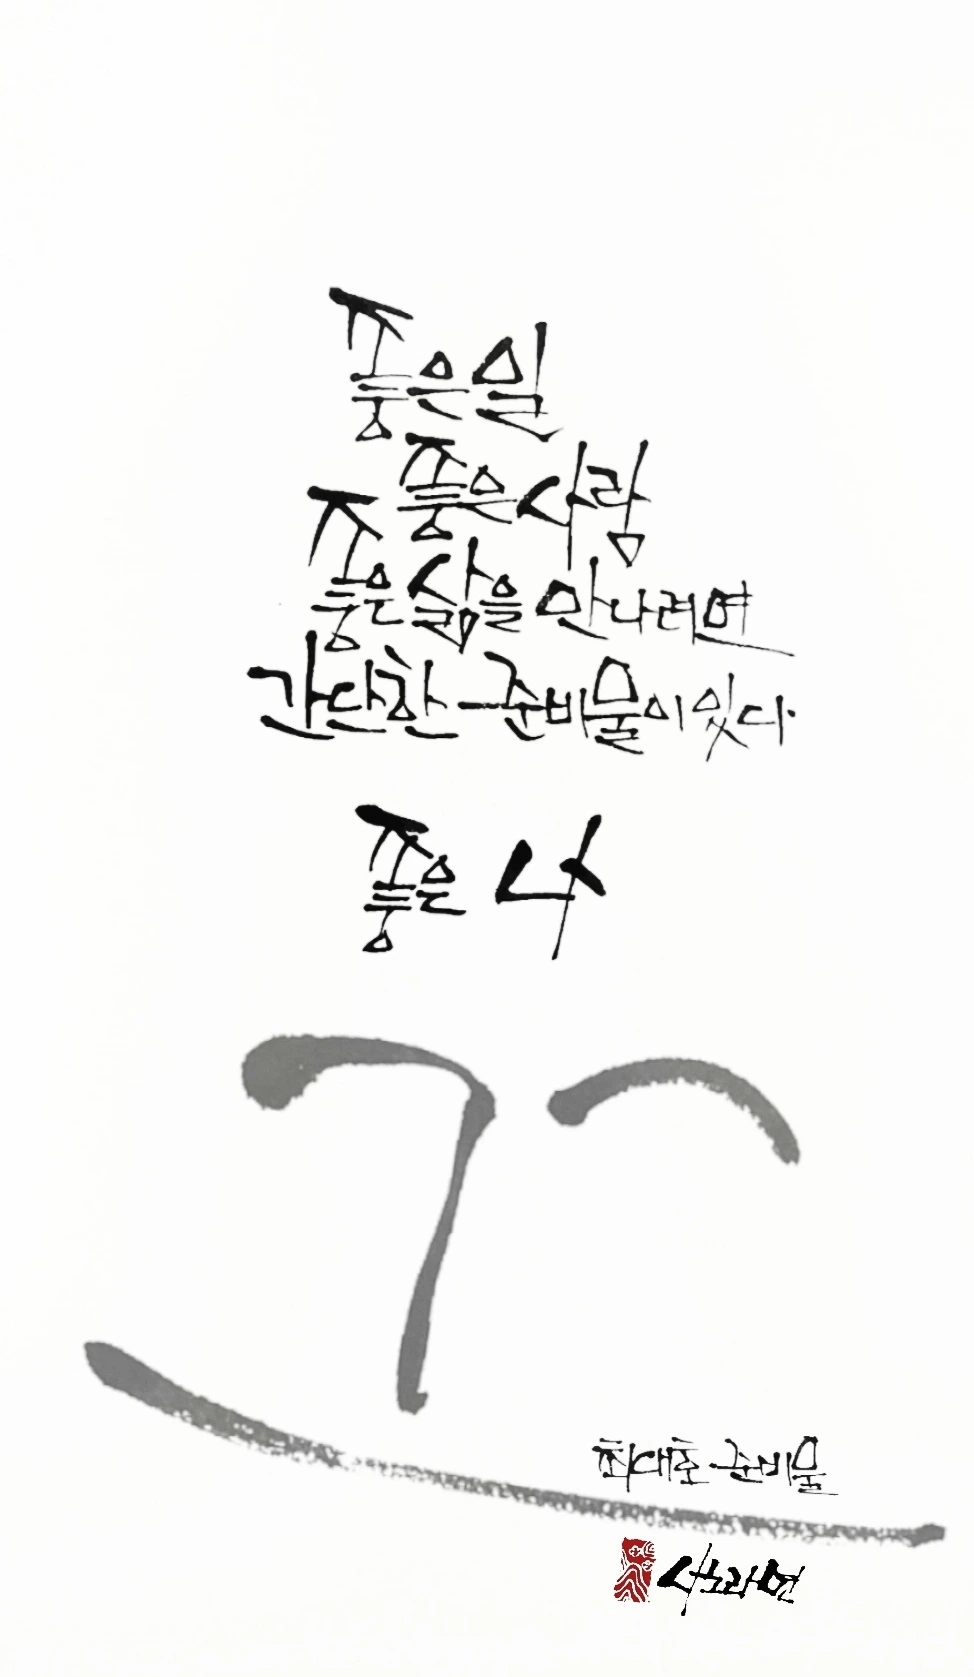 좋은 일
좋은 사람
좋은 삶을 만나려면
간단한 준비물이 있다.
좋은 나
최대호 준비물